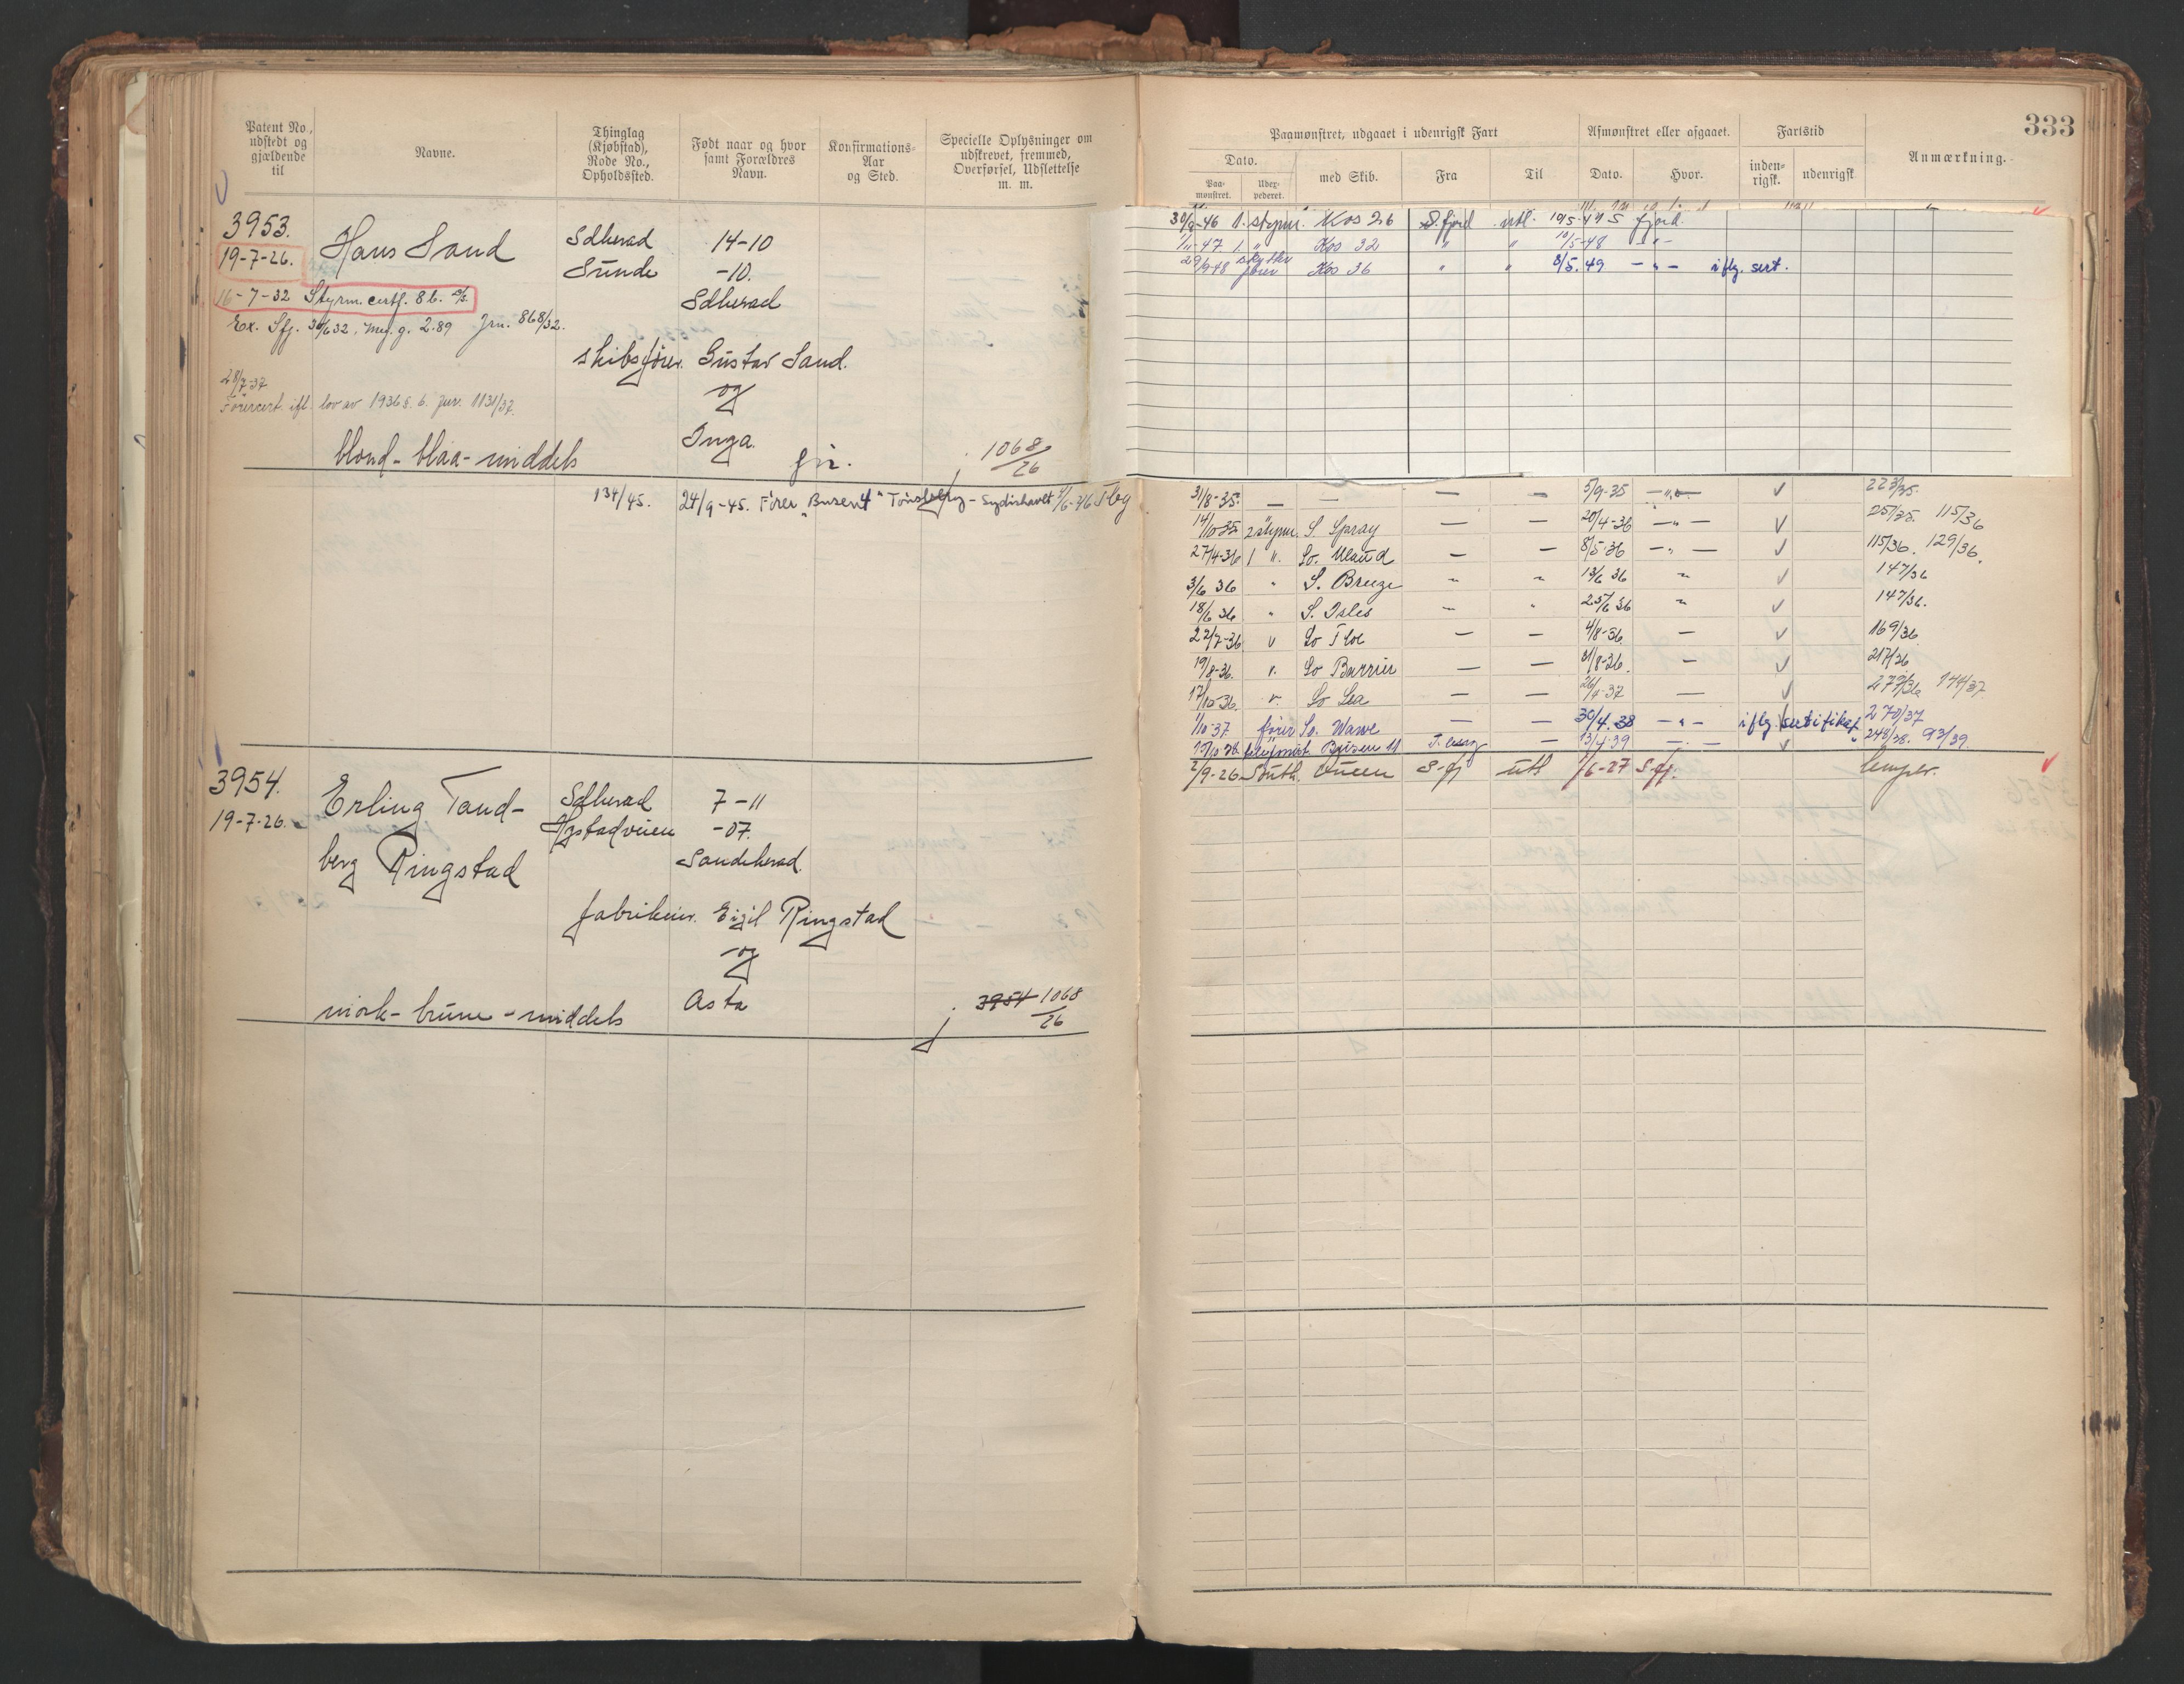 Patent No., udstedt og gjældende til
Navne.
Thinglag (Kjøbstad), Rode No., Opholdssted.
Født naar og hvor samt Forældres Navn.
Konfirmations-Aar og Sted.
Specielle Oplysninger om udskrevet, fremmed, Overførsel, Udslettelse m. m.
3953.
19-7-26.
Hans Sand
Sdherad
Sunde
14-10
-10.
Sdherad
16-7-32 Styrm. certf. 8 b.
Ex. Sfj. 30/6 32. Meg. g. 2.89 Jrn. 868/32.
skibsfører Gustav Sand.
og
28/7-37
Førercert. ifl. lov av 1936 §. 6. Jnr. 1131/37.
Inga.
blond - blaa - middels
1068/26
134/45. 24/9-45. Fører "Busen 4" Tønsberg - Sydishavet 4/6-46 Tbg
3954.
19-7-26.
Erling Tand-
berg Ringstad
Sdherad
Hystadveien
7-11
-07.
Sandeherad.
fabrikeier. Eigil Ringstad
og
Asta
mørk - brune - middels
3954 1068/26
333
Paamønstret, udgaaet i udenrigsk Fart
Afmønstret eller afgaaet.
Fartstid
Anmærkning.
Dato.
Paa-mønstret.
Udex-pederet.
med Skib.
Fra
Til
Dato.
Hvor.
inden-rigsk.
udenrigsk
30/9-46 1. styrm. Kos 26 S.fjord utl. 10/5-47 S fjord.
1/11-47 1. " Kos 32 " " 10/5-48 - " -
29/9-48 skytter fører Kos 36 " " 8/5.49 - " - iflg. sert.
31/8-35. — — — — 5/9-35 - " - ✓ 223/35.
14/10-35 2 styrm. S. Spray — — 20/4-36 - " - ✓ 257/35. 115/36
27/4-36 1 ". So. Maud — — 8/5-36 - " - ✓ 115/36. 129/36.
3/6 36 " S. Breeze " " 13/6 36 " ✓ 147/36
18/6 36 " S. Isles " " 25/6 36 " ✓ 147/36.
22/7-36 " So Floe — — 4/8-36 — ✓ 169/36
19/8-36. " So Barrier — — 31/8-36. — ✓ 217/36
17/10-36. " So Sea — — 26/4-37 — ✓ 279/36 174/37
1/10-37. fører So. Wawe — — 30/4.38 - " - iflg. sertifikat 270/37
15/10 38. Busen 11 T.berg — 13/4-39 - . - ✓ 248/38. 93/39.
2/9-26 South. Queen S-fj utl. 7/6-27 S-fj. ✓